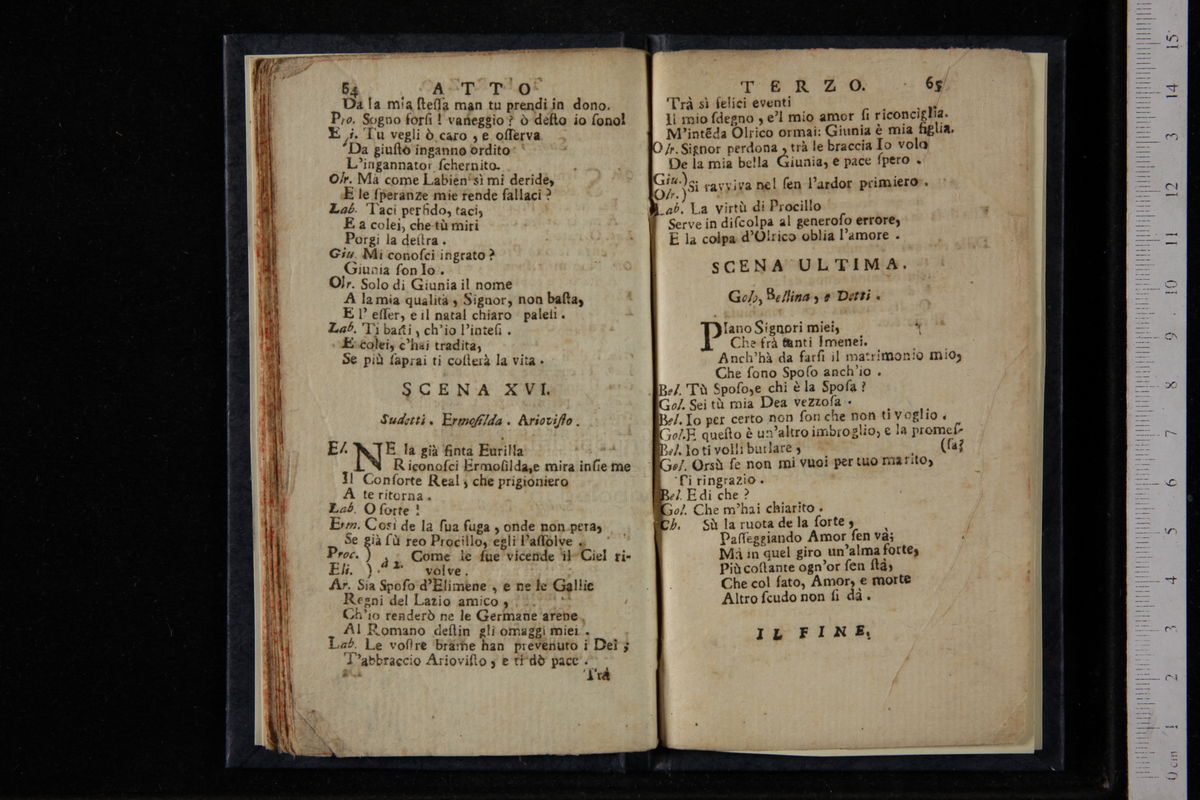 64 ATTO
Da la mia ſteſſa man tu prendi in dono.
Pro. Sogno forſi! vaneggio? ò deſto io ſono!
E i. Tu vegli ò caro, e oſſerva
Da giuſto inganno ordito
L'ingannator ſchernito.
Olr. Ma come Labien sì mi deride,
E le ſperanze mie rende fallaci?
Lab. Taci perfido, taci,
E a colei, che tù miri
Porgi la deſtra.
Giu. Mi conoſci ingrato?
Giunia ſon Io.
Olr. Solo di Giunia il nome
A la mia qualità, Signor, non baſta,
E l' eſſer, e il natal chiaro paleſi.
Lab. Ti baſti, ch'io l'inteſi.
E colei, c'hai tradita,
Se più ſaprai ti coſterà la vita.
SCENA XVI.
Sudetti. Ermoſilda. Arioviſto.
El. NE la già finta Eurilla
Riconoſci Ermoſilda,e mira inſieme
Il Conſorte Real, che prigioniero
A te ritorna.
Lab. O ſorte!
Erm. Così de la ſua fuga, onde non pera,
Se già fù reo Procillo, egli l'aſſolve.
Proc. ) à 2. Come le ſue vicende il Ciel ri-
Eli. ) volve.
Ar. Sia Spoſo d'Elimene, e ne le Gallie
Regni del Lazio amico,
Ch'io renderò ne le Germane arene
Al Romano deſtin gli omaggi miei.
Lab. Le voſtre brame han prevenuto i Dei;
T'abbraccio Arioviſto, e ti dò pace.
Trà
TERZO. 65
Trà sì felici eventi
Il mio ſdegno, e'l mio amor ſi riconciglia.
M'intēda Olrico ormai: Giunia è mia figlia.
Olr. Signor perdona, trà le braccia Io volo
De la mia bella Giunia, e pace ſpero.
Giu.) Si ravviva nel ſen l'ardor primiero.
Olr.)
Lab. La virtù di Procillo
Serve in diſcolpa al generoſo errore,
E la colpa d'Olrico oblia l'amore.
SCENA ULTIMA.
Golo, Bellina, e Detti.
PIano Signori miei,
Che frà tanti Imenei.
Anch'hà da farſi il matrimonio mio,
Che ſono Spoſo anch'io.
Bel. Tù Spoſo,e chi è la Spoſa?
Gol. Sei tù mia Dea vezzoſa.
Bel. Io per certo non ſon che non ti voglio.
Gol. E queſto è un'altro imbroglio, e la promeſ-
Bel. Io ti volli burlare, (ſa?
Gol. Orsù ſe non mi vuoi per tuo marito,
Ti ringrazio.
Bel. E di che?
Gol. Che m'hai chiarito.
Ch. Sù la ruota de la ſorte,
Paſſeggiando Amor ſen và;
Mà in quel giro un'alma forte,
Più coſtante ogn'or ſen ſtà,
Che col fato, Amor, e morte
Altro ſcudo non ſi dà.
IL FINE.